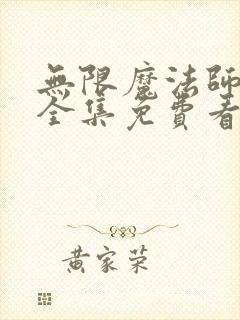 無限魔法師
全集免費看
黄家荣